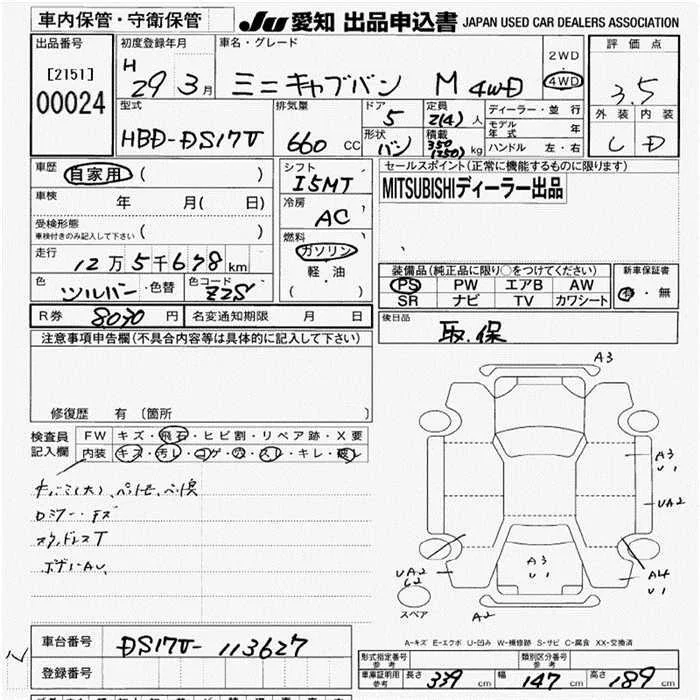 車内保管・守衛保管 JU 愛知 出品申込書 JAPAN USED CAR DEALERS ASSOCIATION
出品番号 初度登録年月 車名・グレード 2WD 評価点
[2151] H 29 3月 ミニキャブバン M 4WD 4WD 3.5
00024 型式 排気量 ドア 定員 ディーラー・並行 外装 内装
HBD-DS17V 660 CC 5 2(4)人 モデル年式 年 C D
形状 バン 積載 350(250) kg ハンドル 左・右
車歴 自家用 ( ) シフト セールスポイント(正常に機能するものに限ります)
車検 年 月( 日) I5MT MITSUBISHIディーラー出品
受検形態 冷房
車検付きのみ記入して下さい ( ) AC
走行 燃料
12万5千678km ガソリン 装備品(純正品に限り○をつけてください) 新車保証書
色 シルバー・色替 色コード ZZS 軽・油 PS PW エアB AW 有・無
( ) SR ナビ TV カワシート
R券 8070円 名変通知期限 月 日 後日品
注意事項申告欄(不具合内容等は具体的に記入して下さい) 取.保
修復歴 有(箇所 )
検査員 FW キズ・飛石・ヒビ割・リペア跡・X要
記入欄 内装 キズ・汚レ・コゲ・穴・スレ・キレ・破レ
A3
A3
U1
UA2
A3
U1
UA2
G2
A4
U1
スペア A2
A-キズ E-エクボ U-凹み W-補修跡 S-サビ C-腐食 XX-交換済
車台番号 DS17V-113627
登録番号
形式指定番号 参考 類別区分番号 参考
車庫証明用 参考 長さ 339 cm 幅 147 cm 高さ 189 cm